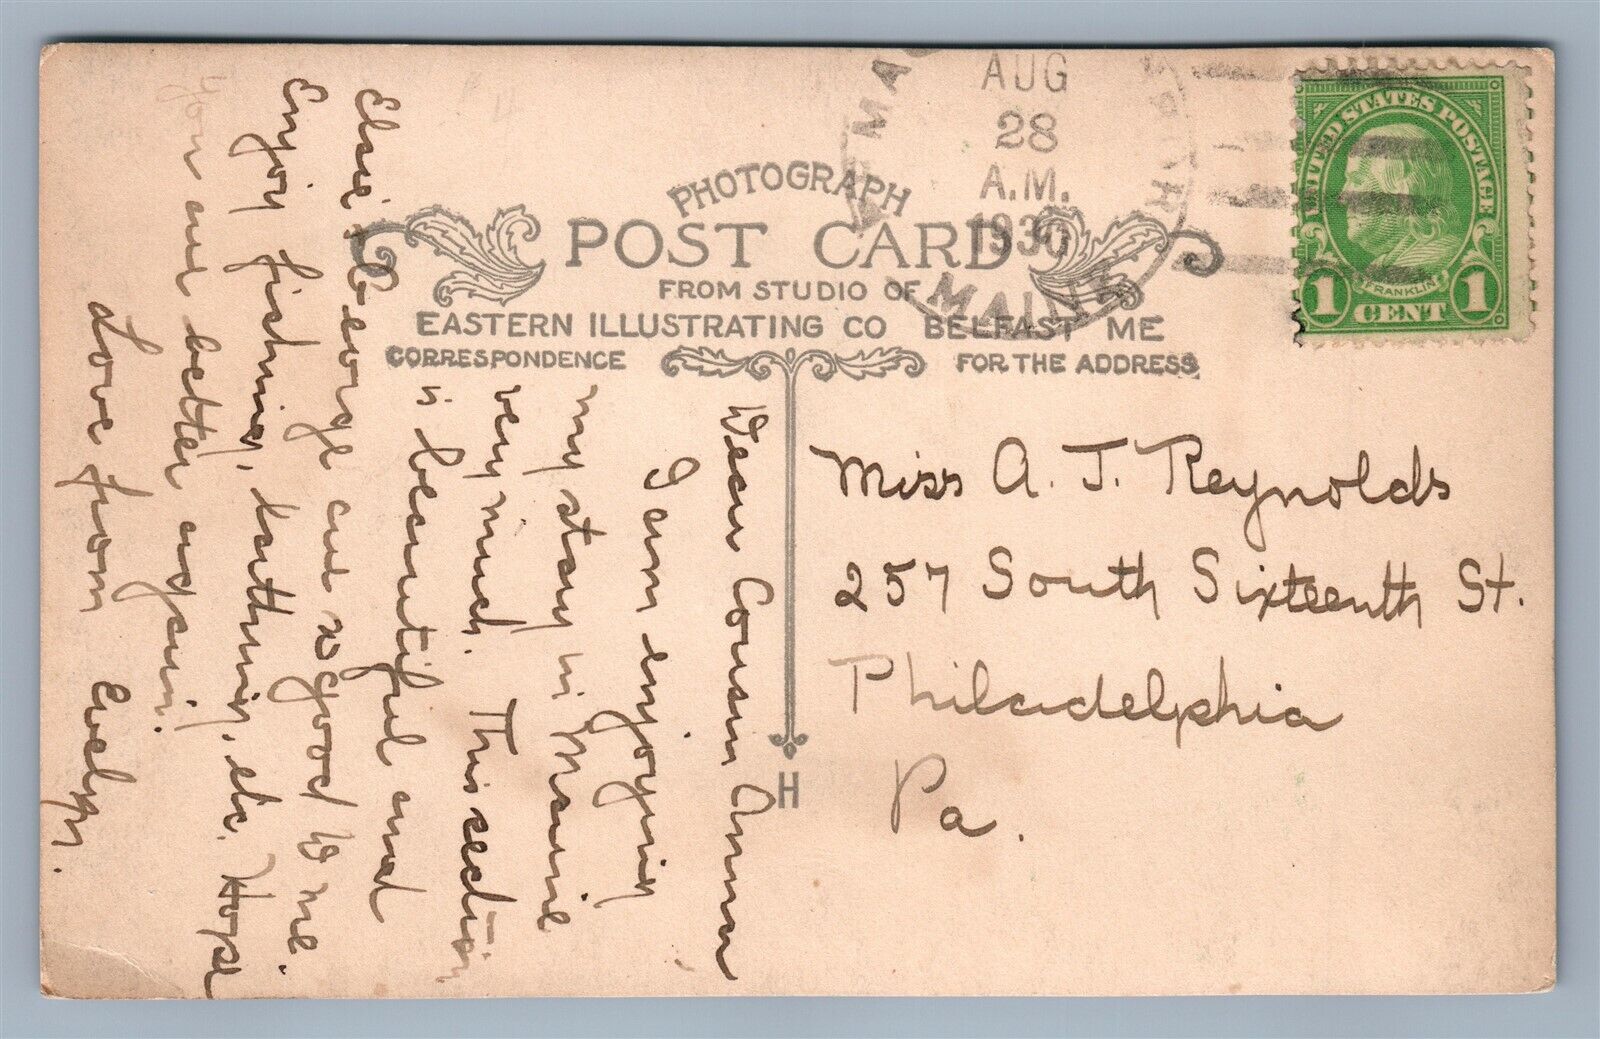 PHOTOGRAPH
POST CARD
FROM STUDIO OF
EASTERN ILLUSTRATING CO BELFAST ME
CORRESPONDENCE
FOR THE ADDRESS
H
AUG
28
A.M.
1930
MAINE
UNITED STATES POSTAGE
FRANKLIN
1 CENT 1
Miss A. J. Reynolds
257 South Sixteenth St.
Philadelphia
Pa.
Dear Cousin Anna
I am enjoying
my stay in Maine
very much. This section
is beautiful and
Elsie & George are so good to me.
Enjoy fishing, bathing, etc. Hope
you are better again.
Love from Evelyn.